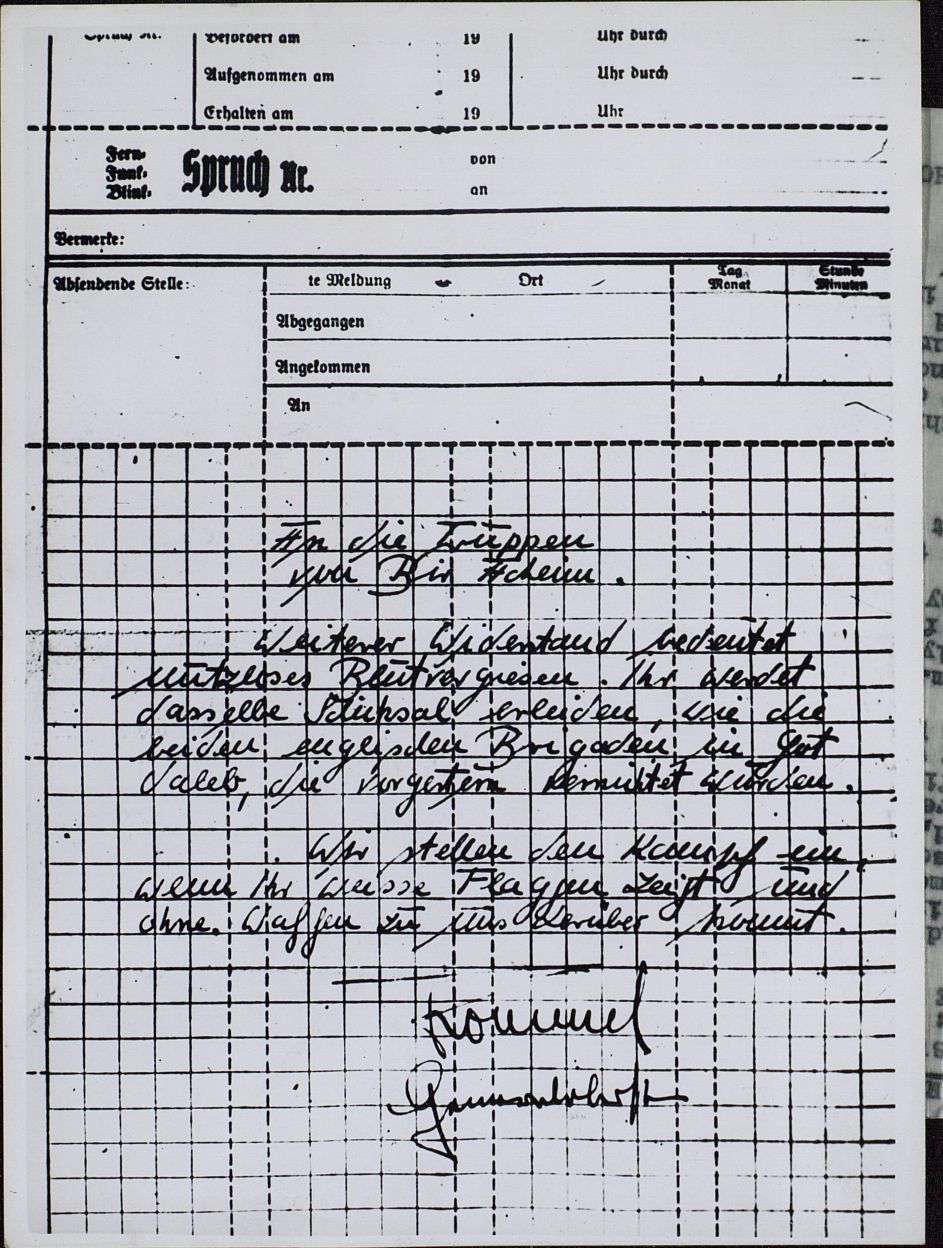 Spruch Nr. Befördert am 19 Uhr durch
Aufgenommen am 19 Uhr durch
Erhalten am 19 Uhr
Fern-
Funk-
Blink-
Spruch Nr.
von
an
Vermerke:
Absendende Stelle: te Meldung Ort Tag Monat Stunde Minuten
Abgegangen
Angekommen
An
An die Truppen
von Bir Acheim.
Weiterer Widerstand bedeutet
nutzloses Blutvergiesen. Ihr werdet
dasselbe Schicksal erleiden, wie die
beiden englischen Brigaden in Got
Saleb, die vorgestern vernichtet wurden.
Wir stellen den Kampf ein,
wenn Ihr weisse Flaggen zeigt und
ohne Waffen zu uns herüber kommt.
Rommel
Generaloberst